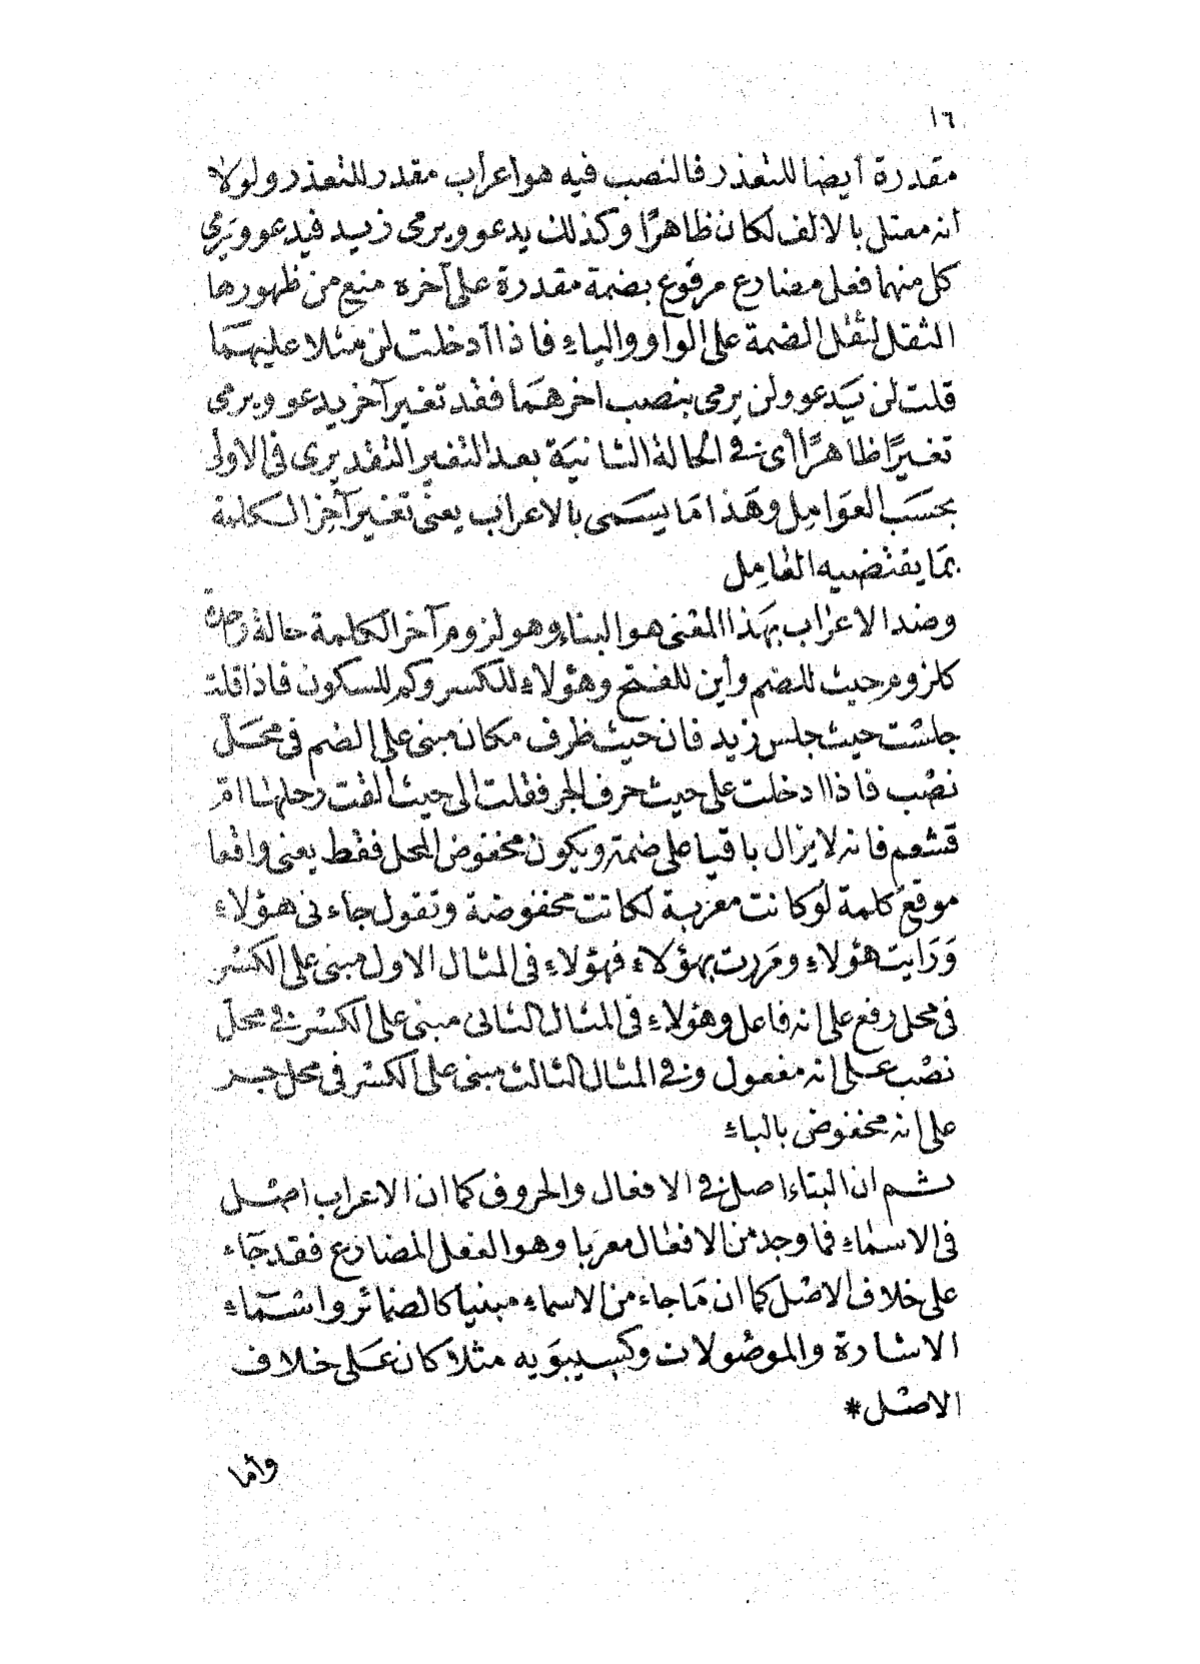 ١٦
مقدرة أيضا للتعذر فالنصب فيه هو اعراب مقدر للتعذر ولولا
أنه معتل بالالف لكان ظاهرًا وكذلك يدعو ويرمى زيد فيدعو ويَرمى
كل منهما فعل مضارع مرفوع بضمة مقدرة على آخره منع من ظهورها
الثقل لثقل الضمة على الواو والياء فاذا أدخلت لن مثلا عليهمَا
قلت لن يَدعو ولن يرمى بنصب اخرهمَا فقد تغير آخر يدعو ويرمى
تغيرًا ظاهرًا أى فى الحالة الثانيَة بعد التغير التقديرى فى الاولى
بحسَب العوَامِل وهَذا مَا يسَمى بالاعراب يعنى تغير آخِر الكلمة
بمَا يقتضيه العامِل
وضد الاعراب بهَذا المعنى هو البناء وهو لزوم آخر الكلمة حالة
كلزوم حيث للضم وأين للفتح وهؤلاء للكسر وكم للسكون فاذا قلت
جلسْت حيث جلس زيد فان حيث ظرف مكان مبنى على الضم فى محَل
نصْب فاذا ادخلت على حيث حرف الجر فقلت الى حيث ألقت رحلها ام
قشعم فانه لا يزال باقيا على ضمته ويكون مخفوض المحل فقط يعنى واقعا
موقع كلمة لو كانت معربة لكانت مخفوضة وتقول جاء نى هؤلاء
وَرَايت هؤلاء ومَررت بهؤلاء فهؤلاء فى المثال الاول مبنى على الكسْر
فى محل رفع على انه فاعل وهؤلاء فى المثال الثانى مبنى على الكسْر فى محل
نصْب على انه مفعول وفى المثال الثالث مبنى على الكسْر فى محل جر
على انه مخفوض بالباء
ثم ان البناء اصل فى الافعال والحروف كما ان الاعراب اصْل
فى الاسمَاء فما وجد من الافعَال معرَبا وهو الفعل المضارع فقد جَاء
على خلاف الاصْل كما ان مَا جاء من الاسماء مبنياً كالضمائر واسمَاء
الاشارة والموصُولات وكسيبوَيه مثلاً كان عَلى خلاف
الاصْل *
وأما